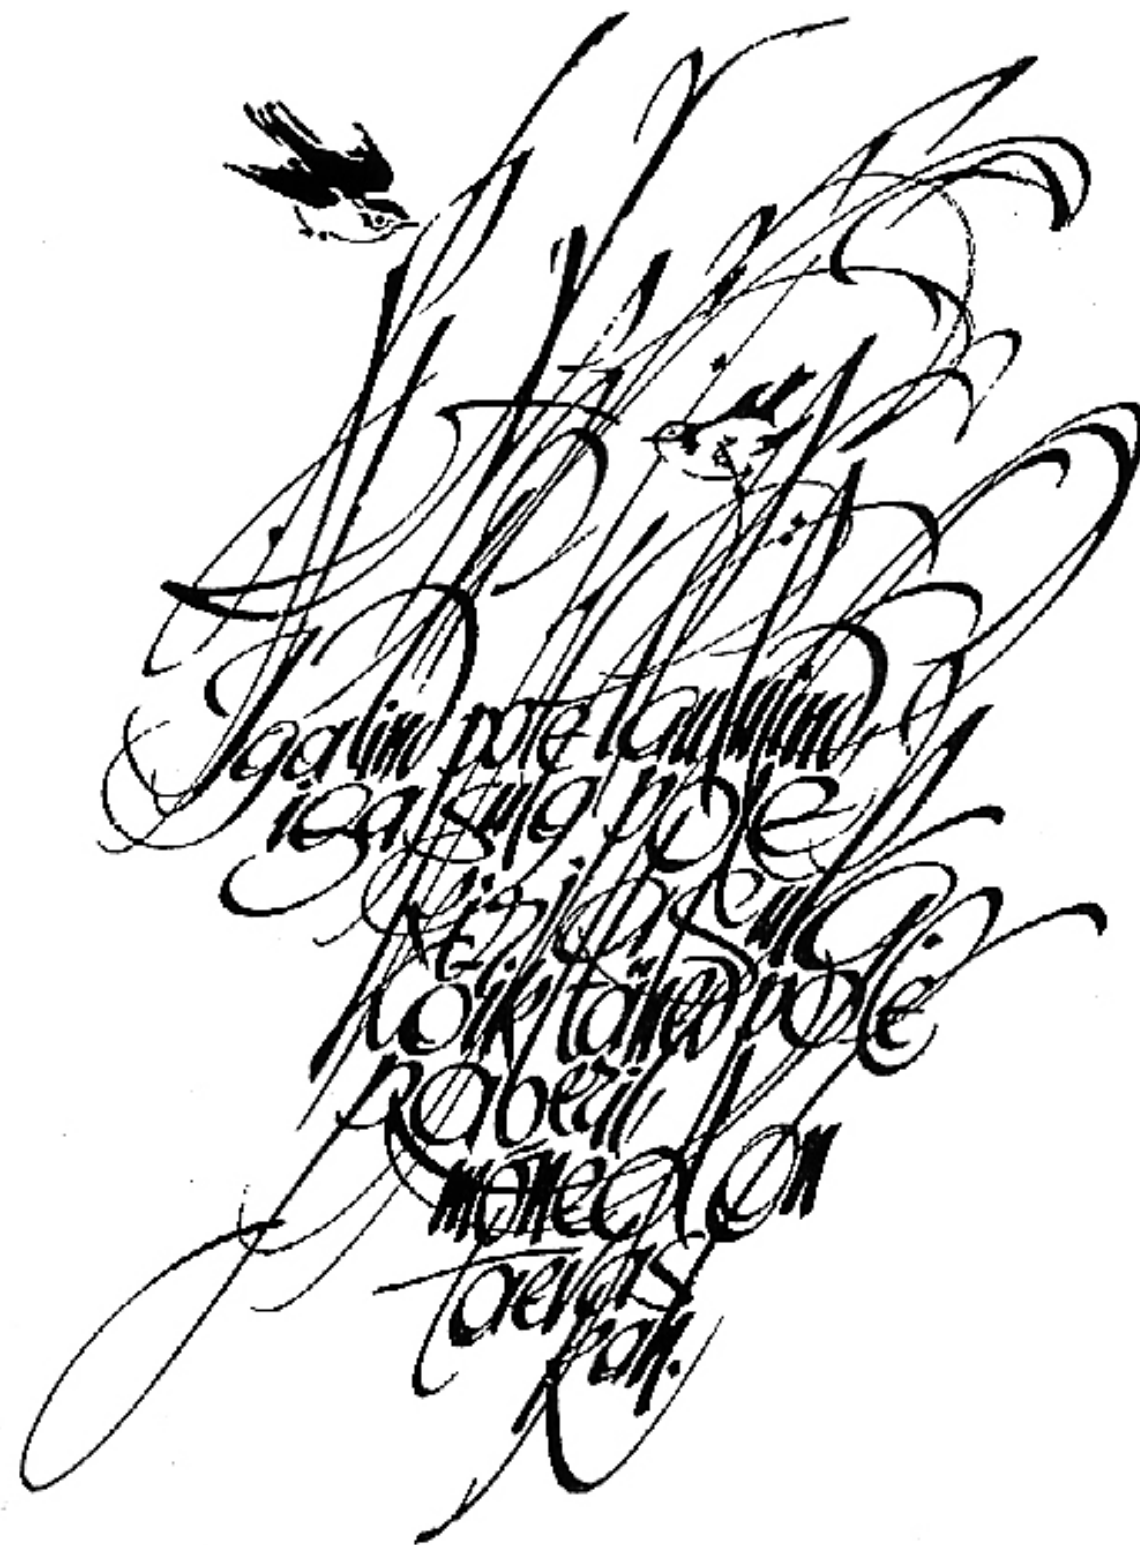 Iga lind pole laululind,
iga sulg pole
kirjasulg
kõik tähed pole
paberil
mõned on
taevas
kah.